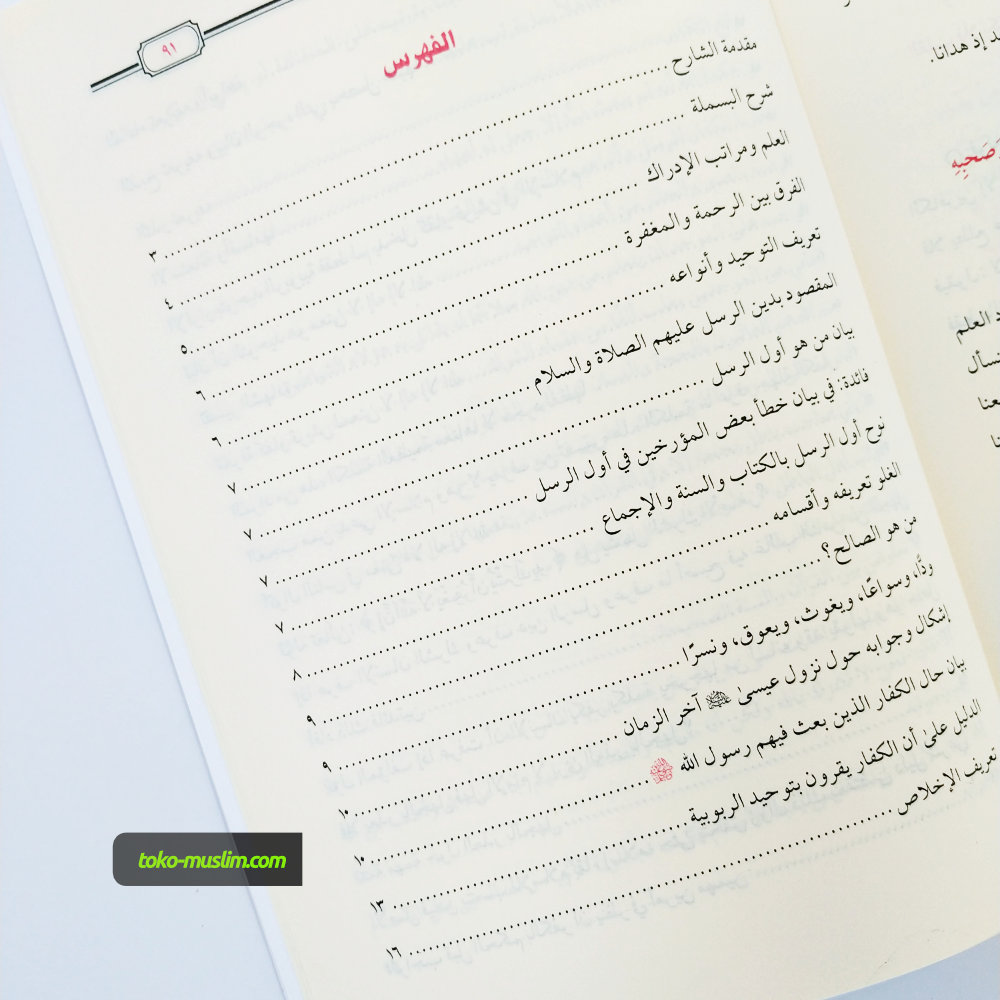 إذ هدانا.
وَصَحْبِهِ
العلم
٩١
الفهرس
مقدمة الشارح ........ ٣
شرح البسملة ........ ٤
العلم ومراتب الإدراك ........ ٥
الفرق بين الرحمة والمغفرة ........ ٦
تعريف التوحيد وأنواعه ........ ٦
المقصود بدين الرسل عليهم الصلاة والسلام ........ ٧
بيان من هو أول الرسل ........ ٧
فائدة: في بيان خطأ بعض المؤرخين في أول الرسل ........ ٧
نوح أول الرسل بالكتاب والسنة والإجماع ........ ٧
الغلو تعريفه وأقسامه ........ ٨
من هو الصالح؟ ........ ٩
ودًّا، وسواعًا، ويغوث، ويعوق، ونسرًا ........ ٩
إشكال وجوابه حول نزول عيسىٰ ﵇ آخر الزمان ........ ١٠
بيان حال الكفار الذين بعث فيهم رسول الله ﷺ ........ ١٠
الدليل علىٰ أن الكفار يقرون بتوحيد الربوبية ........ ١٣
تعريف الإخلاص ........ ١٦
toko-muslim.com